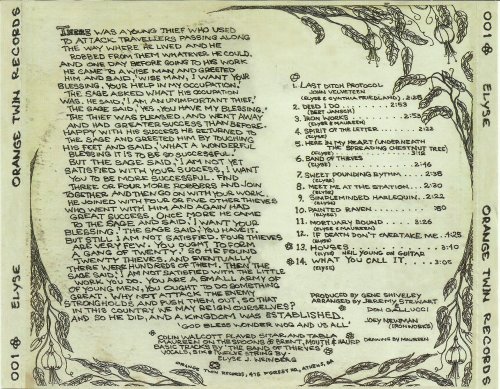 THERE WAS A YOUNG THIEF WHO USED
TO ATTACK TRAVELLERS PASSING ALONG
THE WAY WHERE HE LIVED AND HE
ROBBED FROM THEM WHATEVER HE COULD.
AND ONE DAY BEFORE GOING TO HIS WORK
HE CAME TO A WISE MAN AND GREETED
HIM AND SAID, 'WISE MAN, I WANT YOUR
BLESSING, YOUR HELP IN MY OCCUPATION.'
THE SAGE ASKED WHAT HIS OCCUPATION
WAS. HE SAID, 'I AM AN UNIMPORTANT THIEF.'
THE SAGE SAID, 'YES, YOU HAVE MY BLESSING.'
THE THIEF WAS PLEASED, AND WENT AWAY
AND HAD GREATER SUCCESS THAN BEFORE.
HAPPY WITH HIS SUCCESS HE RETURNED TO
THE SAGE AND GREETED HIM BY TOUCHING
HIS FEET AND SAID, 'WHAT A WONDERFUL
BLESSING IT IS TO BE SO SUCCESSFUL.'
BUT THE SAGE SAID, 'I AM NOT YET
SATISFIED WITH YOUR SUCCESS, I WANT
YOU TO BE MORE SUCCESSFUL. FIND
THREE OR FOUR MORE ROBBERS AND JOIN
TOGETHER AND THEN GO ON WITH YOUR WORK.'
HE JOINED WITH FOUR OR FIVE OTHER THIEVES
WHO WENT WITH HIM AND AGAIN HAD
GREAT SUCCESS. ONCE MORE HE CAME
TO THE SAGE AND SAID, 'I WANT YOUR
BLESSING.' THE SAGE SAID, 'YOU HAVE IT.
BUT STILL I AM NOT SATISFIED. FOUR THIEVES
ARE VERY FEW. YOU OUGHT TO FORM
A GANG OF TWENTY.' SO HE FOUND
TWENTY THIEVES, AND EVENTUALLY
THERE WERE HUNDREDS OF THEM. THEN THE
SAGE SAID, 'I AM NOT SATISFIED WITH THE LITTLE
WORK YOU DO. YOU ARE A SMALL ARMY OF
OF YOUNG MEN, YOU OUGHT TO DO SOMETHING
GREAT. WHY NOT ATTACK THE ENEMY
STRONGHOLDS, AND PUSH THEM OUT, SO THAT
IN THIS COUNTRY WE MAY REIGN OURSELVES?'
AND SO HE DID, AND A KINGDOM WAS ESTABLISHED.
'GOD BLESS WONDER WOG AND US ALL'
COLIN WALCOTT PLAYED SITAR AND TABLA
MAUREEN ON THE SPOONS & BRENT, MOUTH & HARP
BASIC TRACKS BY 'THE BAND OF THIEVES'
VOCALS, SIX & TWELVE STRING BY
ELYSE J. WEINBERG
ORANGE TWIN RECORDS, 475 FOREST RD, ATHENS, GA
1. LAST DITCH PROTOCOL
JOHN VELVETEEN
(ELYSE & CYNTHIA FRIEDLAND) . 2:28
2. DEED I DO ... 2:53
(BERT JANSCH)
3. IRON WORKS ... 2:53
(ELYSE & MAUREEN)
4. SPIRIT OF THE LETTER ... 2:22
(ELYSE)
5. HERE IN MY HEART (UNDERNEATH
THE SPREADING CHESTNUT TREE)
(ELYSE)
6. BAND OF THIEVES
(ELYSE) ... 2:46
7. SWEET POUNDING RYTHM ... 2:38
(ELYSE)
8. MEET ME AT THE STATION ... 2:30
(ELYSE)
9. SIMPLEMINDED HARLEQUIN .. 2:22
(ELYSE)
10. PAINTED RAVEN
(ELYSE)
11. MORTUARY BOUND ... 2:26
(ELYSE & MAUREEN)
12. IF DEATH DON'T OVERTAKE ME .. 4:28
(ELYSE)
13. HOUSES ... 3:40
(ELYSE) NEIL YOUNG ON GUITAR
14. WHAT YOU CALL IT ... 3:05
(ELYSE)
PRODUCED BY GENE SHIVELEY
ARRANGED BY JEREMY STEWART
DON GALLUCCI
JOEY NEWMAN
(IRON WORKS)
DRAWING BY MAUREEN
001 ELYSE ORANGE TWIN RECORDS
001 ELYSE ORANGE TWIN RECORDS